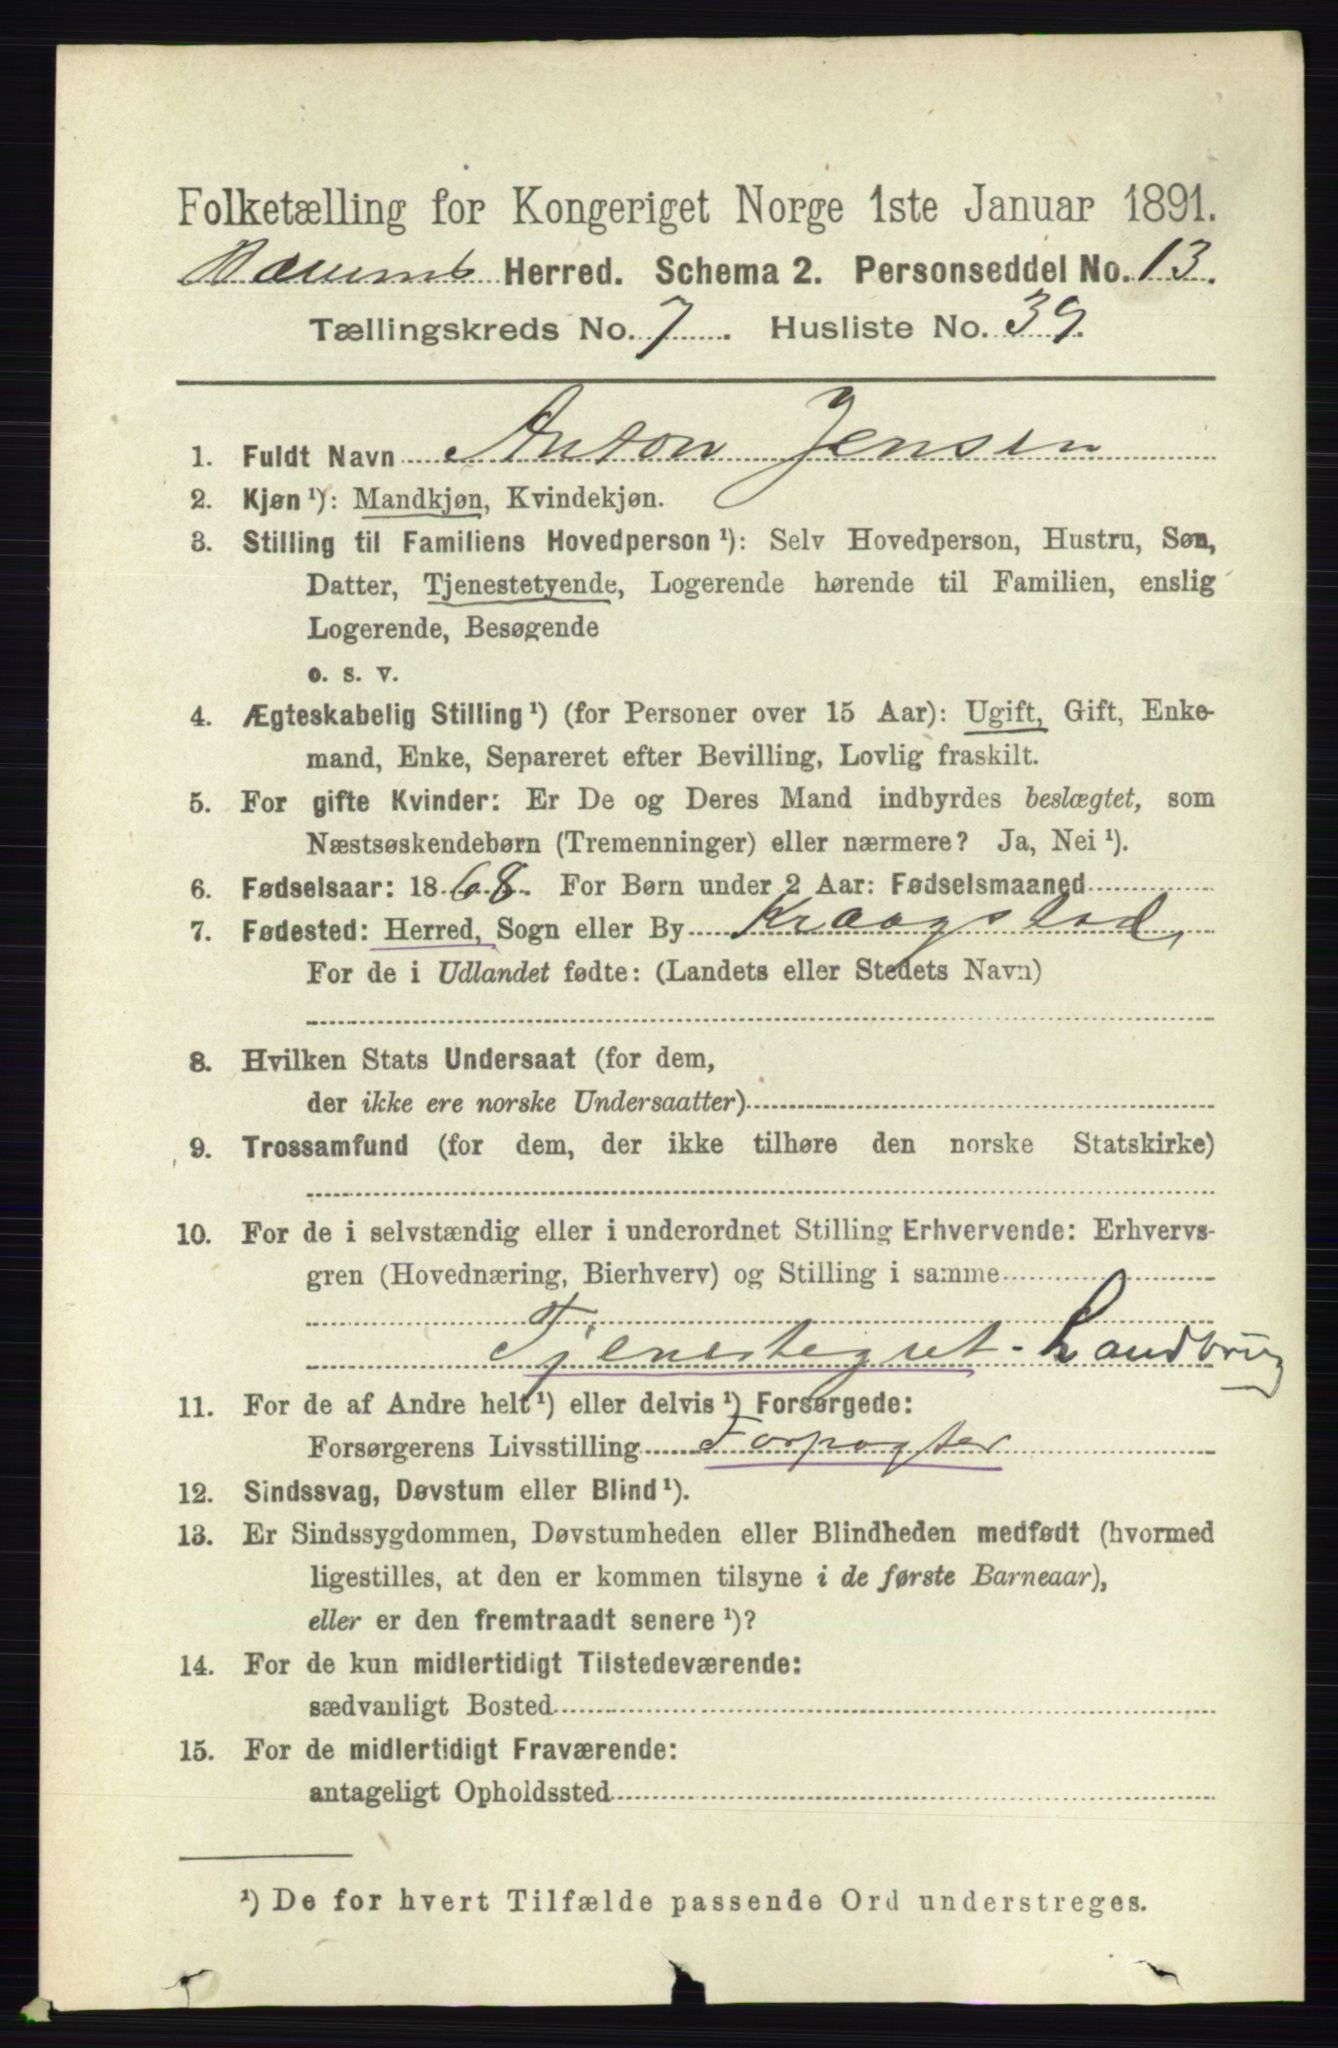 Folketælling for Kongeriget Norge 1ste Januar 1891.
Bærums Herred. Schema 2. Personseddel No. 13.
Tællingskreds No. 7. Husliste No. 39.
1. Fuldt Navn Anton Jensen
2. Kjøn ¹): Mandkjøn, Kvindekjøn.
3. Stilling til Familiens Hovedperson ¹): Selv Hovedperson, Hustru, Søn,
Datter, Tjenestetyende, Logerende hørende til Familien, enslig
Logerende, Besøgende
o. s. v.
4. Ægteskabelig Stilling ¹) (for Personer over 15 Aar): Ugift, Gift, Enke-
mand, Enke, Separeret efter Bevilling, Lovlig fraskilt.
5. For gifte Kvinder: Er De og Deres Mand indbyrdes beslægtet, som
Næstsøskendebørn (Tremenninger) eller nærmere? Ja, Nei ¹).
6. Fødselsaar: 1868. For Børn under 2 Aar: Fødselsmaaned
7. Fødested: Herred, Sogn eller By Kraagstad,
For de i Udlandet fødte: (Landets eller Stedets Navn)
8. Hvilken Stats Undersaat (for dem,
der ikke ere norske Undersaatter)
9. Trossamfund (for dem, der ikke tilhøre den norske Statskirke)
10. For de i selvstændig eller i underordnet Stilling Erhvervende: Erhvervs-
gren (Hovednæring, Bierhverv) og Stilling i samme
Tjenestegut - Landbrug
11. For de af Andre helt ¹) eller delvis ¹) Forsørgede:
Forsørgerens Livsstilling Forpagter
12. Sindssvag, Døvstum eller Blind ¹).
13. Er Sindssygdommen, Døvstumheden eller Blindheden medfødt (hvormed
ligestilles, at den er kommen tilsyne i de første Barneaar),
eller er den fremtraadt senere ¹)?
14. For de kun midlertidigt Tilstedeværende:
sædvanligt Bosted
15. For de midlertidigt Fraværende:
antageligt Opholdssted
¹) De for hvert Tilfælde passende Ord understreges.